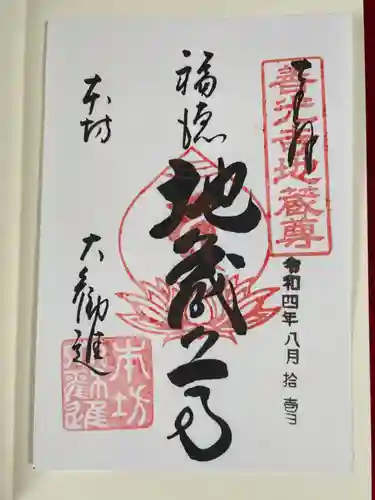 善光寺地蔵尊
令和四年八月拾壱日
福徳
地蔵尊
本坊
大勧進
本坊
大勧進